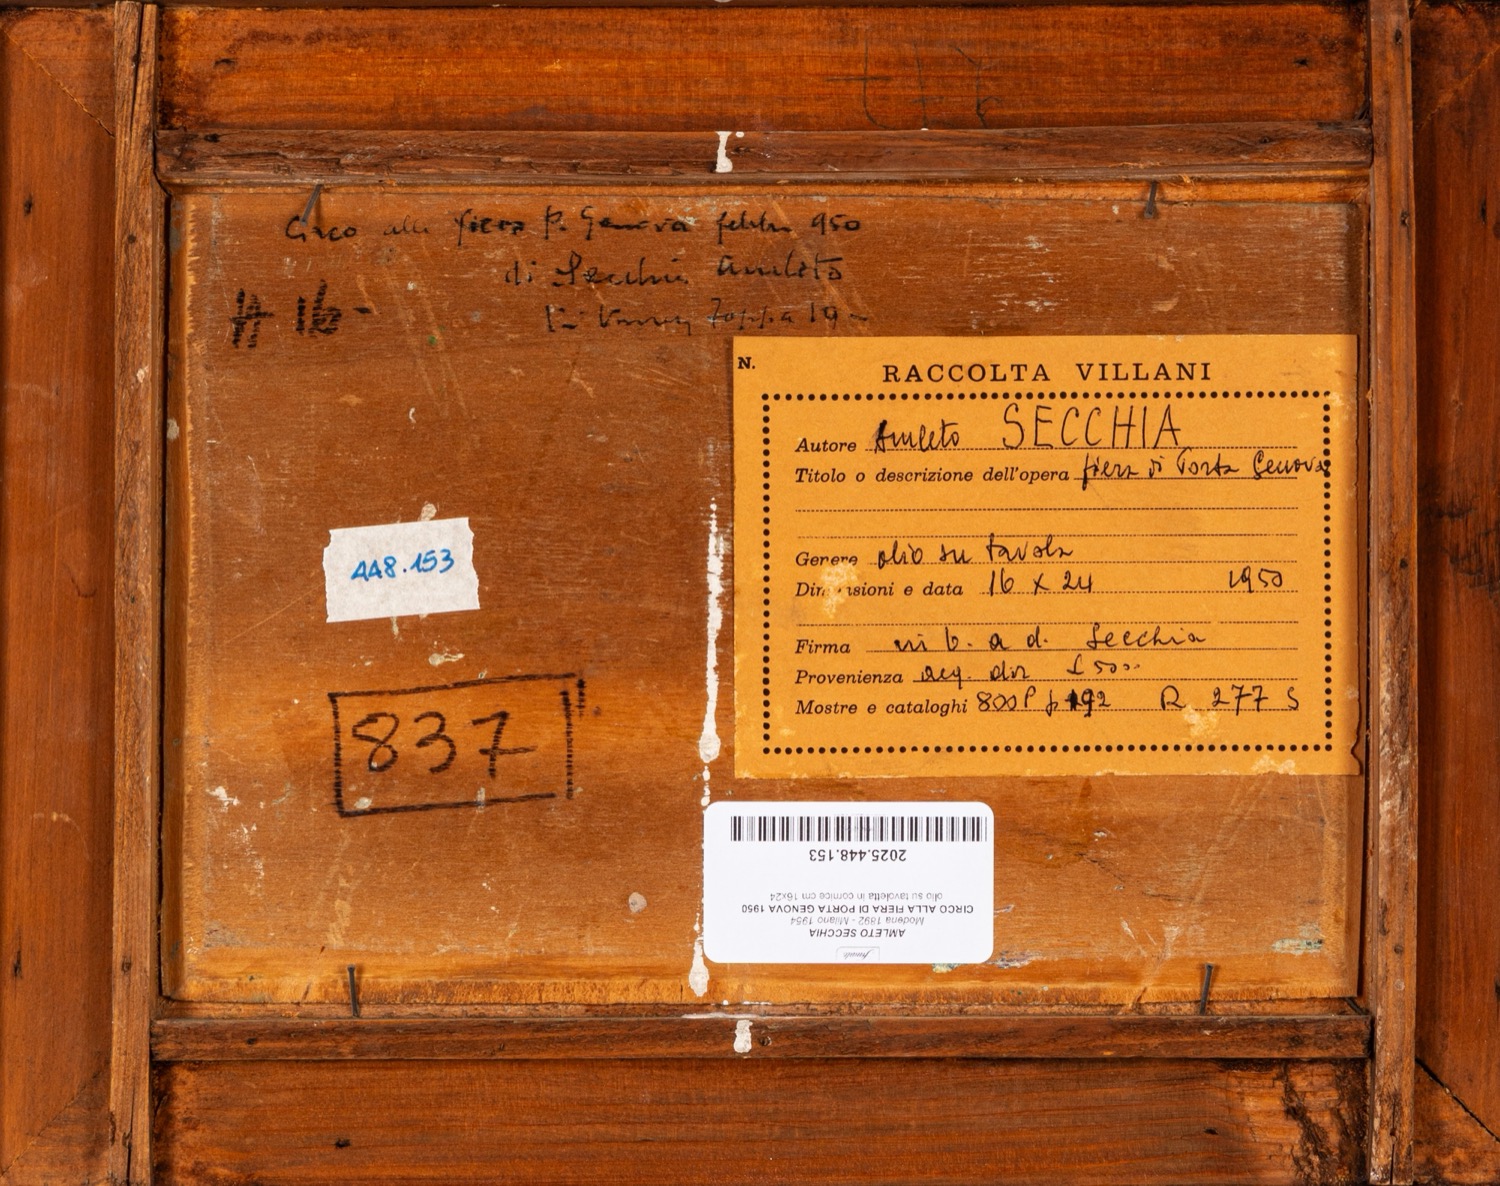 Circo alla fiera P. Genova febbr 950
di Secchia Amleto
Foppa 19
N.
RACCOLTA VILLANI
Autore Amleto SECCHIA
Titolo o descrizione dell'opera fiera di Porta Genova
Genere olio su tavola
Dimensioni e data 16 x 24 1950
Firma in b. a d. Secchia
Provenienza acq. £ 5000
Mostre e cataloghi 800 P p 192 R 277 S
448.153
837
AMLETO SECCHIA
Modena 1892 - Milano 1954
CIRCO ALLA FIERA DI PORTA GENOVA 1950
olio su tavoletta in cornice cm 16x24
2025.448.153